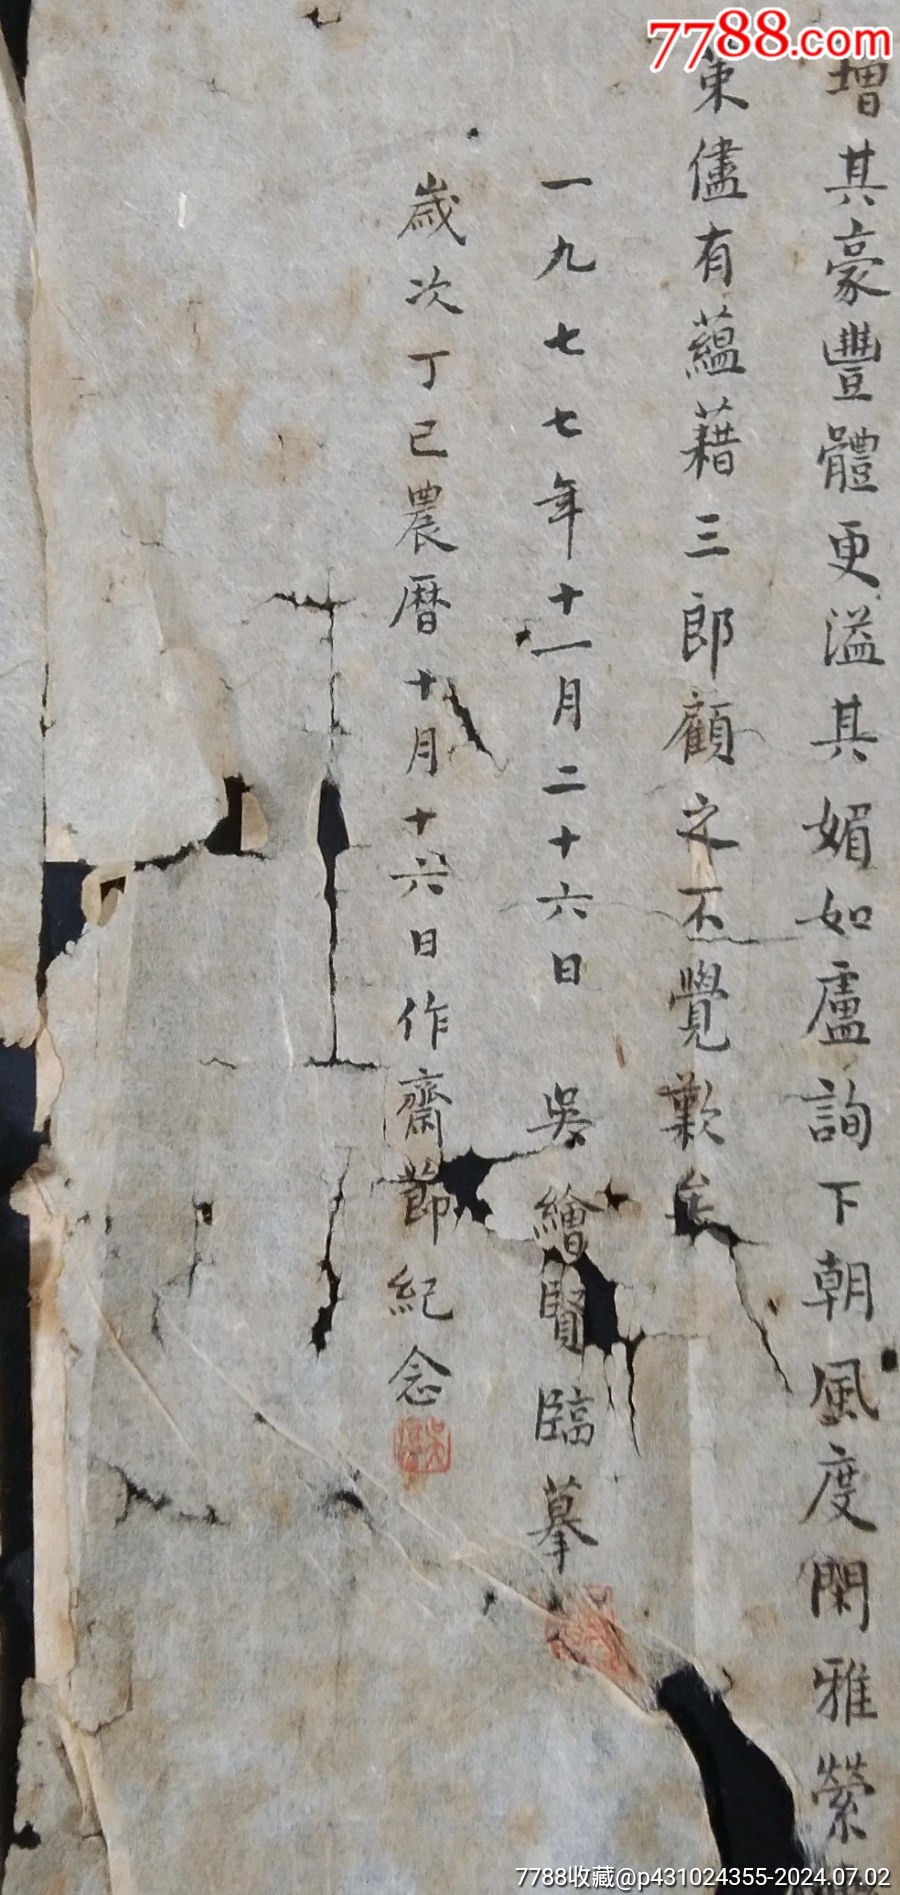 7788.com
增其豪豐體更溢其媚如盧詢下朝風度閑雅縈
束儘有蘊藉三郎顧之不覺歎矣
一九七七年十一月二十六日 吳繪賢臨摹
歲次丁巳農曆十月十六日作齋節紀念
7788收藏@p431024355-2024.07.02